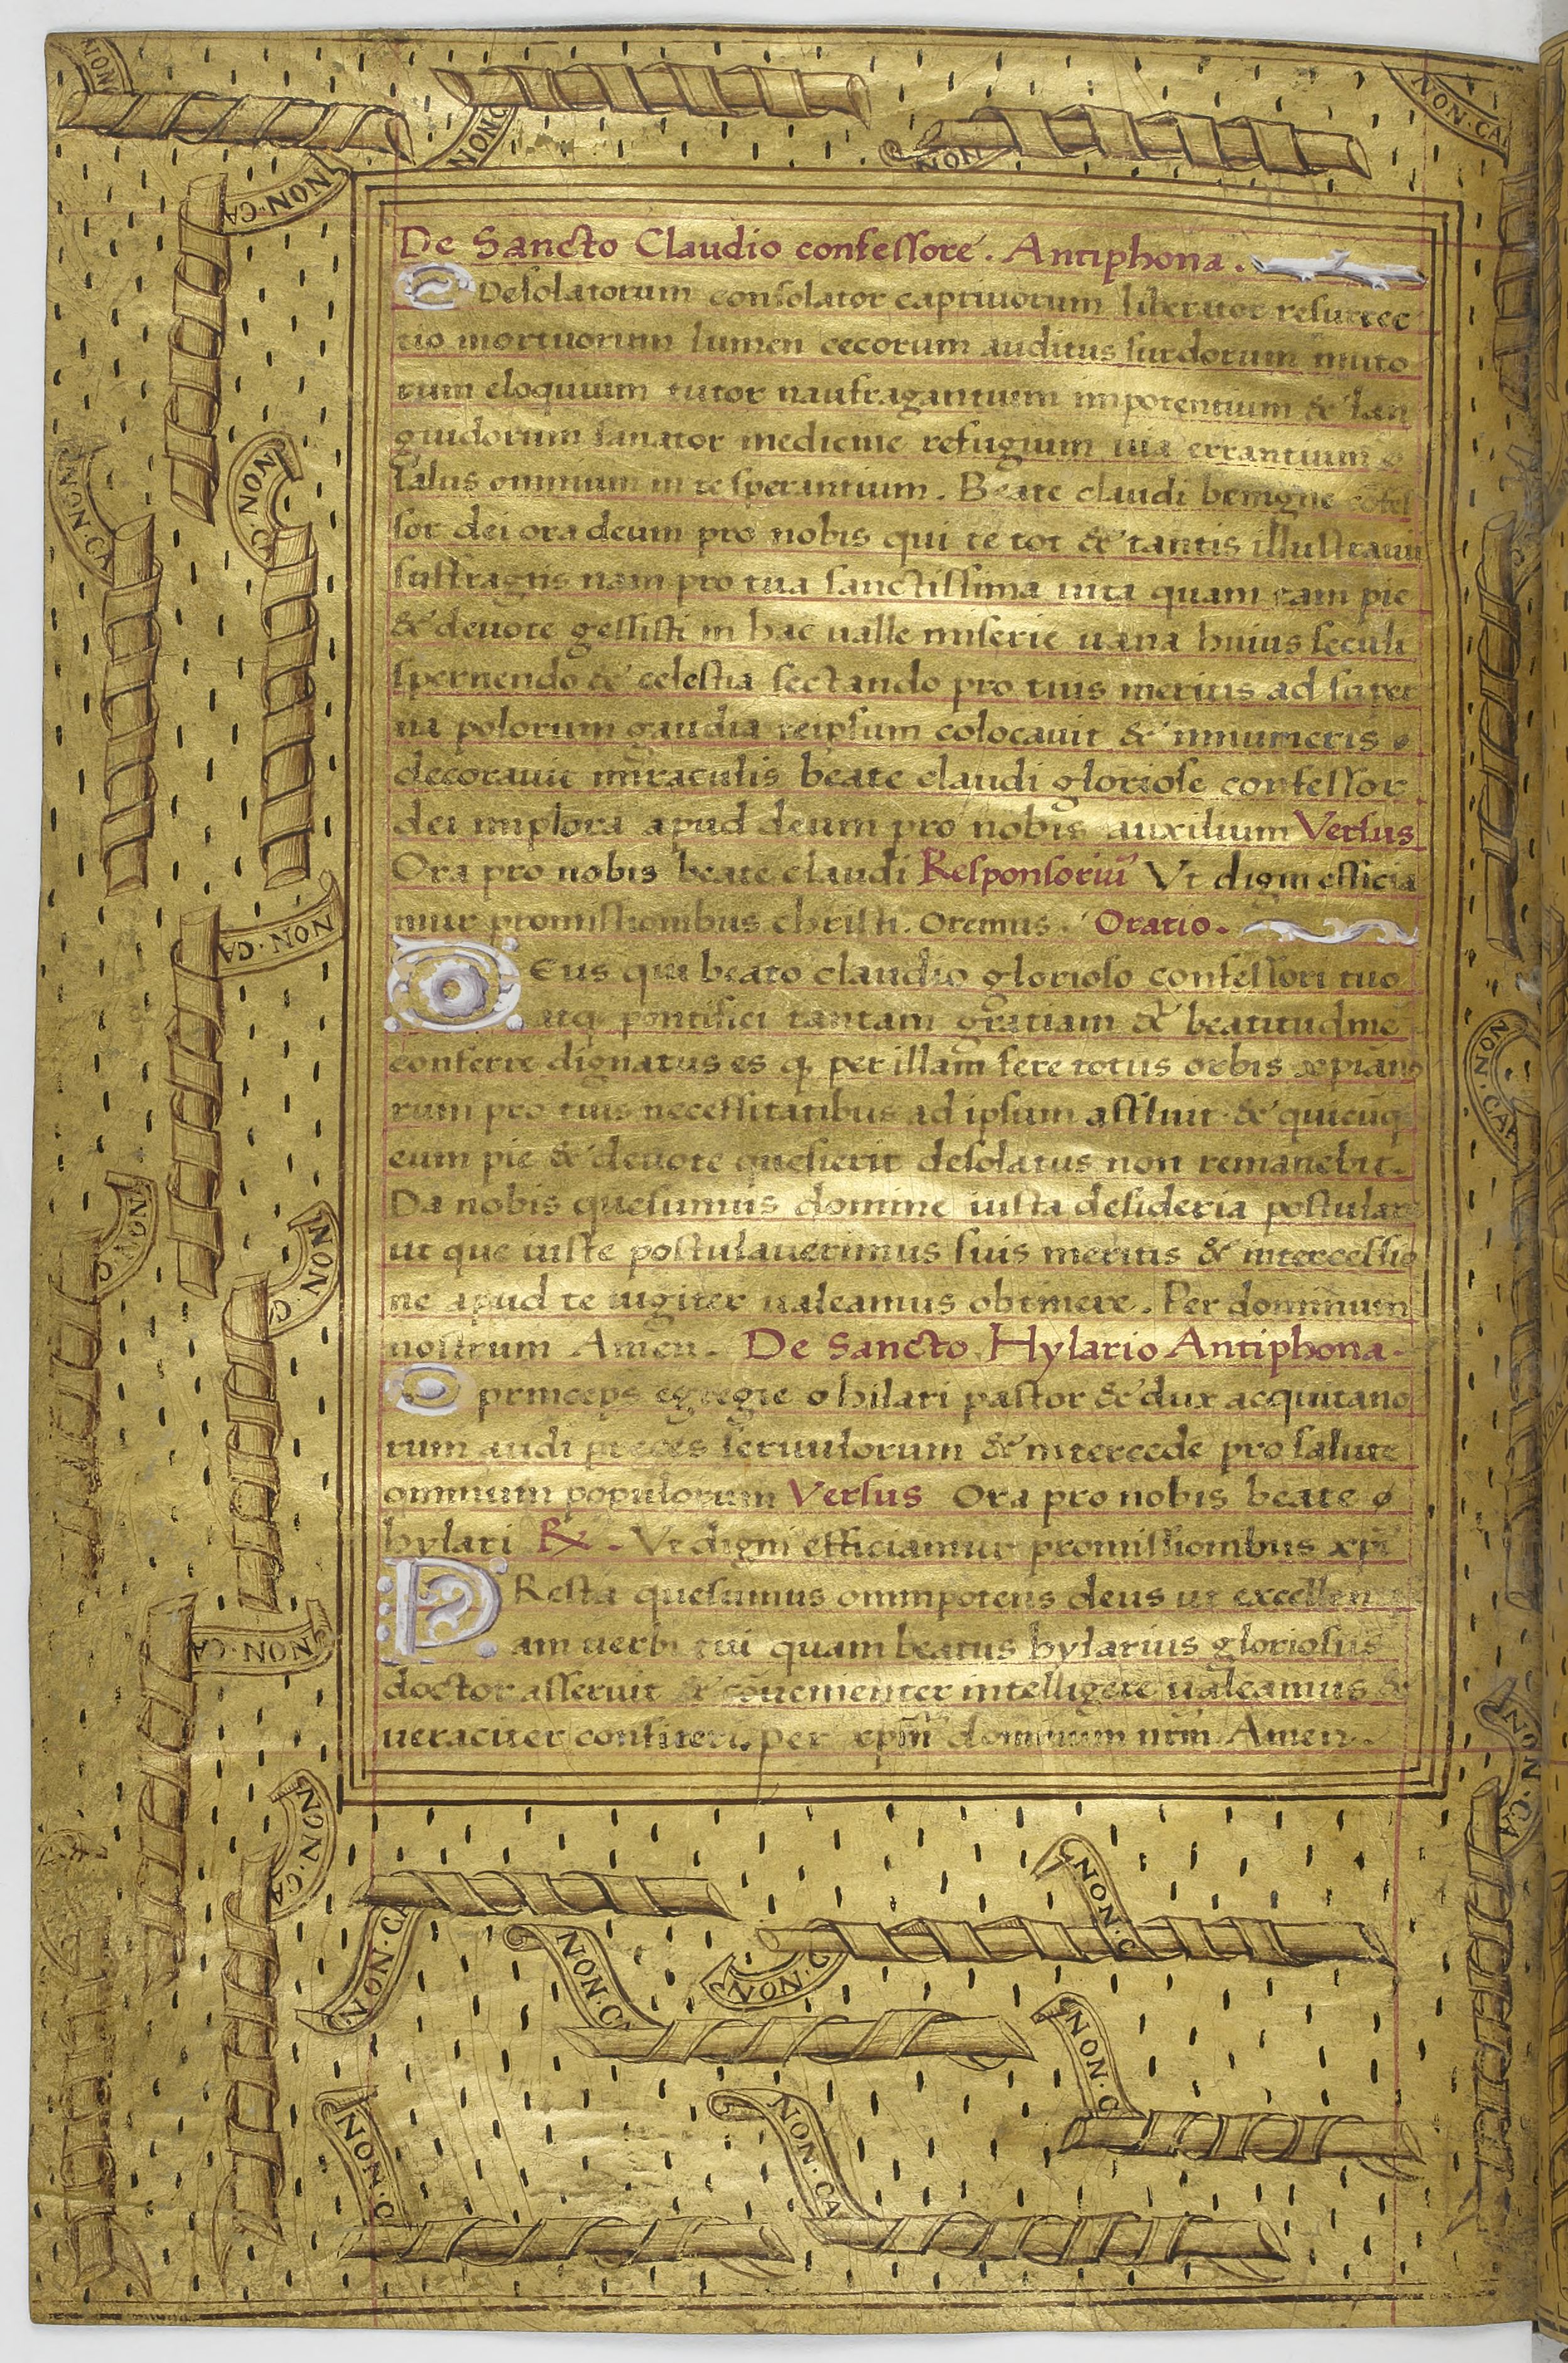 De Sancto Claudio confessore. Antiphona.
O Desolatorum consolator captiuorum liberator resurrec
tio mortuorum lumen cecorum auditus surdorum muto
rum eloquium tutor naufragantium impotentium & lan
guidorum sanator medicine refugium uia errantium
salus omnium in te sperantium. Beate claudi benigne cõfes
sor dei ora deum pro nobis qui te tot & tantis illustrauit
suffragiis nam pro tua sanctissima uita quam tam pie
& deuote gessisti in hac ualle miserie uana huius seculi
spernendo & celestia sectando pro tuis meritis ad super
na polorum gaudia teipsum colocauit & innumeris
decorauit miraculis beate claudi gloriose confessor
dei implora apud deum pro nobis auxilium Versus
Ora pro nobis beate claudi Responsoriũ Vt digni efficia
mur promissionibus christi. Oremus. Oratio.
DEus qui beato claudio glorioso confessori tuo
atq pontifici tantam gratiam & beatitudine
conferre dignatus es q per illam fere totus orbis xpiano
rum pro tuis necessitatibus ad ipsum affluit & quicũq
eum pie & deuote quesierit desolatus non remanebit.
Da nobis quesumus domine iusta desideria postulare
ut que iuste postulauerimus suis meritis & intercessio
ne apud te iugiter ualeamus obtinere. Per dominum
nostrum Amen. De Sancto Hylario Antiphona.
O princeps egregie o hilari pastor & dux acquitano
rum audi preces seruulorum & intercede pro salute
omnium populorum Versus Ora pro nobis beate
hylari ℞. Vt digni efficiamur promissionibus xpi
PResta quesumus omnipotens deus ut excellen
am uerbi tui quam beatus hylarius gloriosus
doctor asseruit & cõuenienter intelligere ualeamus &
ueraciter confiteri. per xpm̃ dominum nrm̃. Amen.
NON
NON C
NON
NON·CA
NON·CA
NON·CA
NON·C
NON·CA
NON·CA
NON
NON·C
NON·CA
NON·CA
NON·CA
NON·CA
NON·C
NON·C
NON·C
NON·C
NON·C
NON·CA